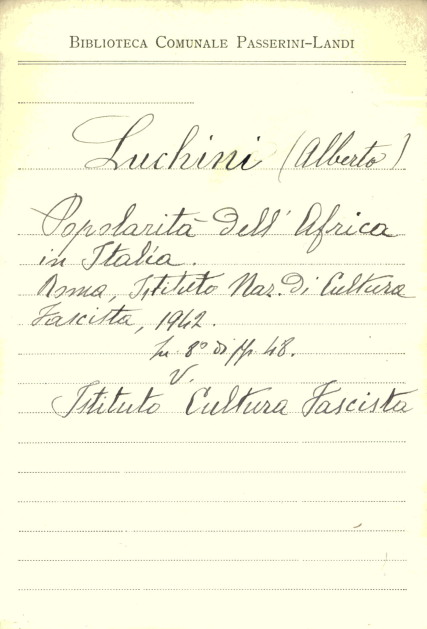 BIBLIOTECA COMUNALE PASSERINI-LANDI
Luchini (Alberto)
Popolarità dell' Africa
in Italia.
Roma, Istituto Naz. di Cultura
Fascista, 1942.
In 8° di pp. 48.
V.
Istituto Cultura Fascista